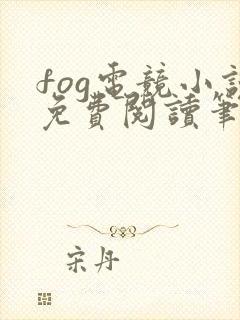 fog電競小說
免費閱讀筆
宋丹